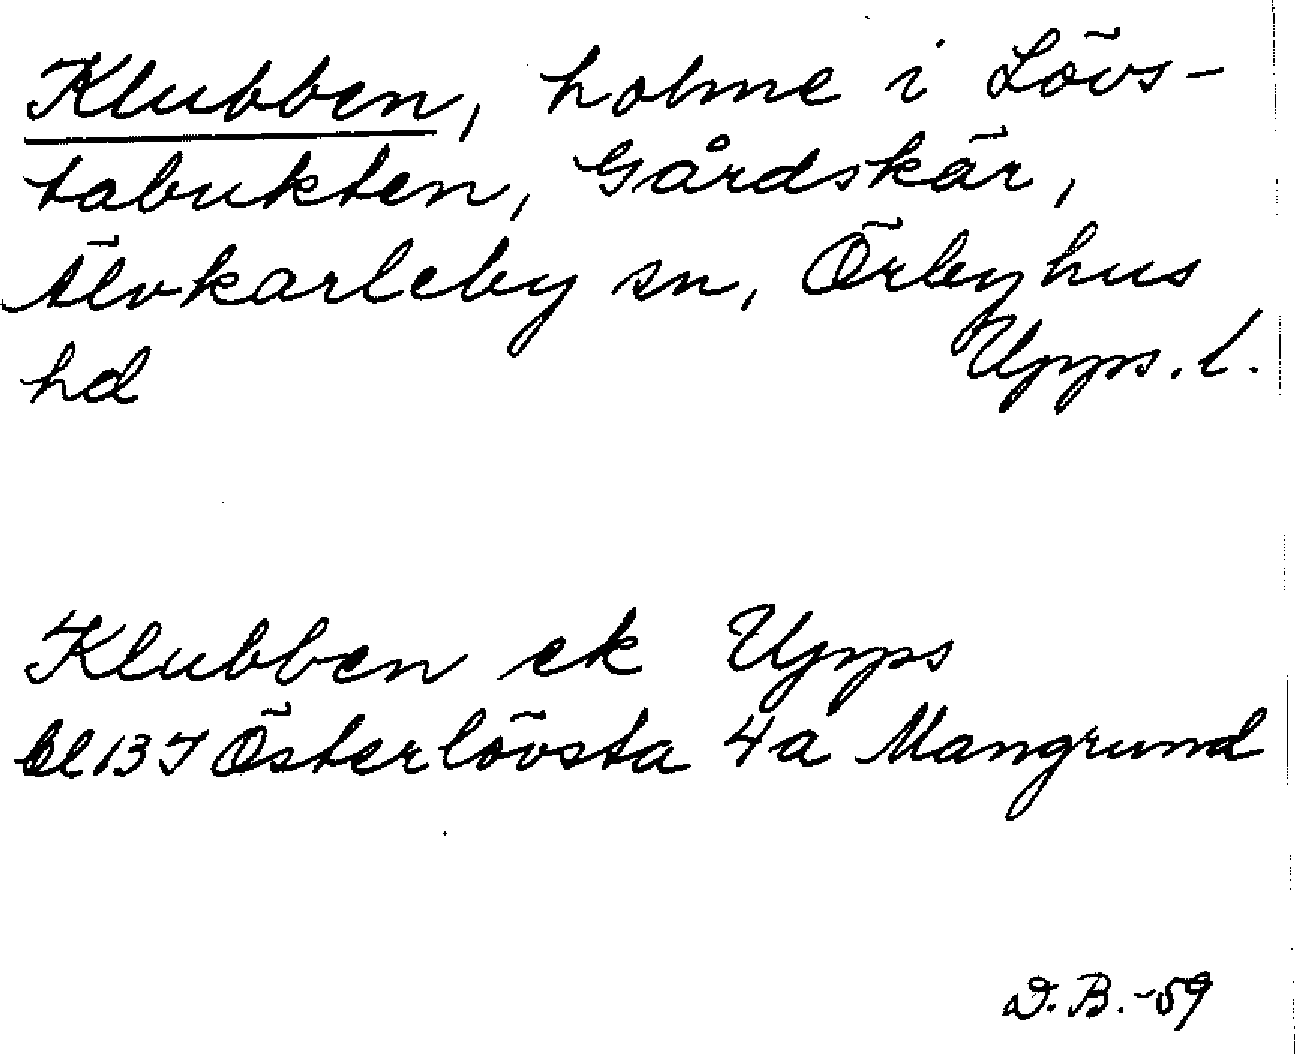 Klubben, holme i Lövs-
tabukten, Gårdskär,
Älvkarleby sn, Örbyhus
hd Upps. l.
Klubben ek Upps
bl 13 I Österlövsta 4a Mangrund
D. B. -59